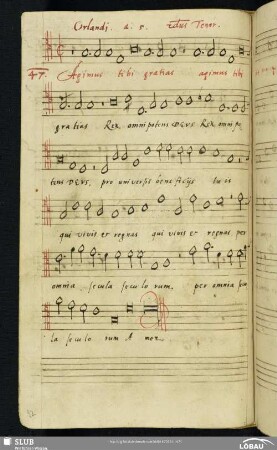 Orlandi. a: 5. 2dus Tenor.
47. Agimus tibi gratias agimus tibi
gratias Rex omnipotens DEUS Rex omnipo
tens DEUS, pro universis beneficijs tuis
qui vivis et regnas qui vivis et regnas per
omnia secula seculorum, per omnia secu
la seculo rum A men
SLUB
Wir führen Wissen.
LÖBAU